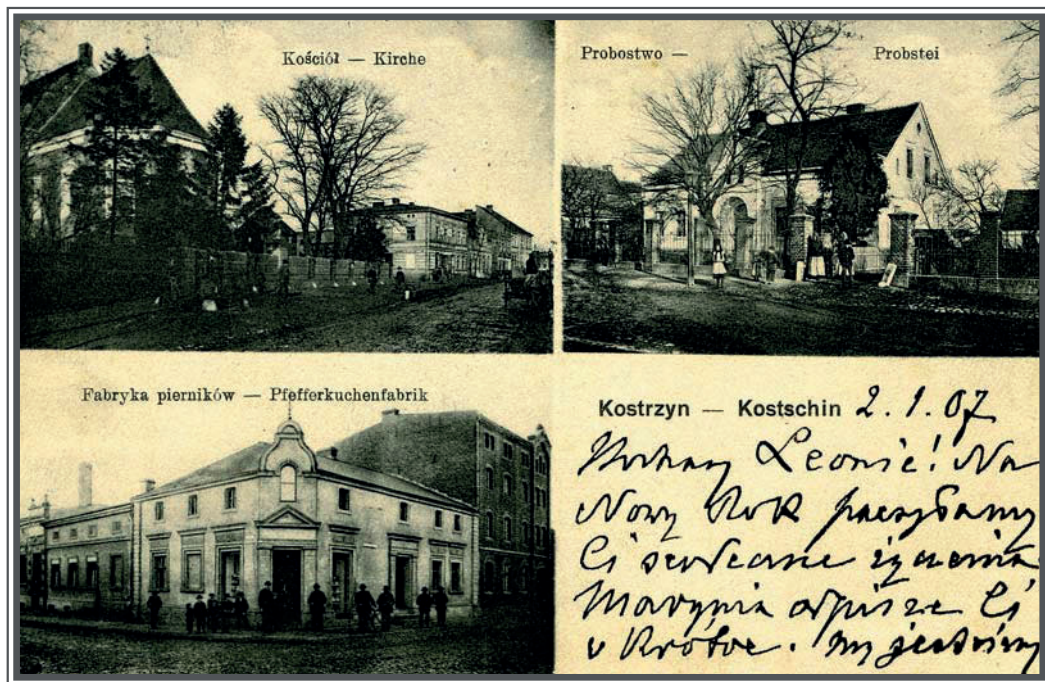 Kościół — Kirche
Probostwo — Probstei
Fabryka pierników — Pfefferkuchenfabrik
Kostrzyn — Kostschin 2.1.07
Kochany Leonie! Na
Nowy Rok przesyłamy
Ci serdeczne życzenia
Marynia odpisze Ci
w krótce. My jesteśmy